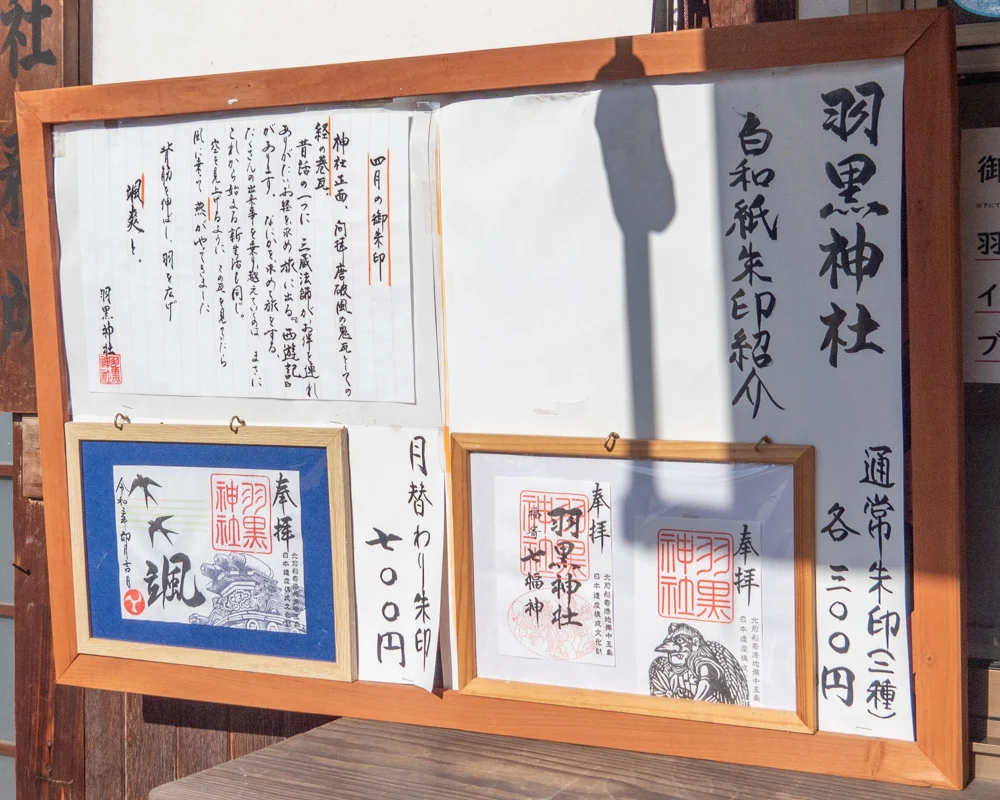 羽黒神社
白和紙朱印紹介
通常朱印(二種)
各三〇〇円
奉拝
羽黒神社
奉拝
羽黒神社
七福神
羽黒神社
月替わり朱印
七〇〇円
四月の御朱印
神社正面、向拝唐破風の鬼瓦としての
経の巻瓦。
昔話の一つに三蔵法師がお伴を連れ
ありがたいお経を求め旅に出る『西遊記』
があります。なにかを求め旅をする。
たくさんの出来事を乗り越えていくのはまさに
これから始まる新生活も同じ。
空を見上げるようにこの瓦を見ていたら
風に乗って燕がやってきました
背筋を伸ばし、羽を広げ
颯爽と。
羽黒神社
羽黒神社
奉拝
羽黒神社
颯
卯月吉日
社
御
羽
イ
ブ